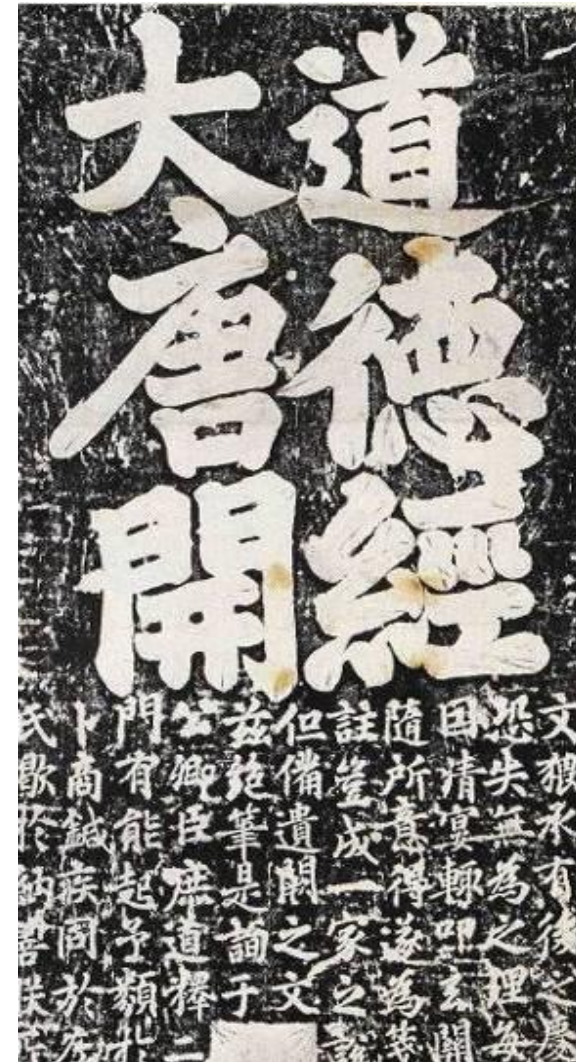 道德經
大唐開
文猥承有後之慶
恐失無為之理每
因清宴輒叩玄關
隨所意得遂為箋
註豈成一家之說
但備遺闕之文
茲絶筆是詢于
公卿臣庶道釋二
門有能起予類於
卜商鍼疾同於左
氏歇於納善朕所